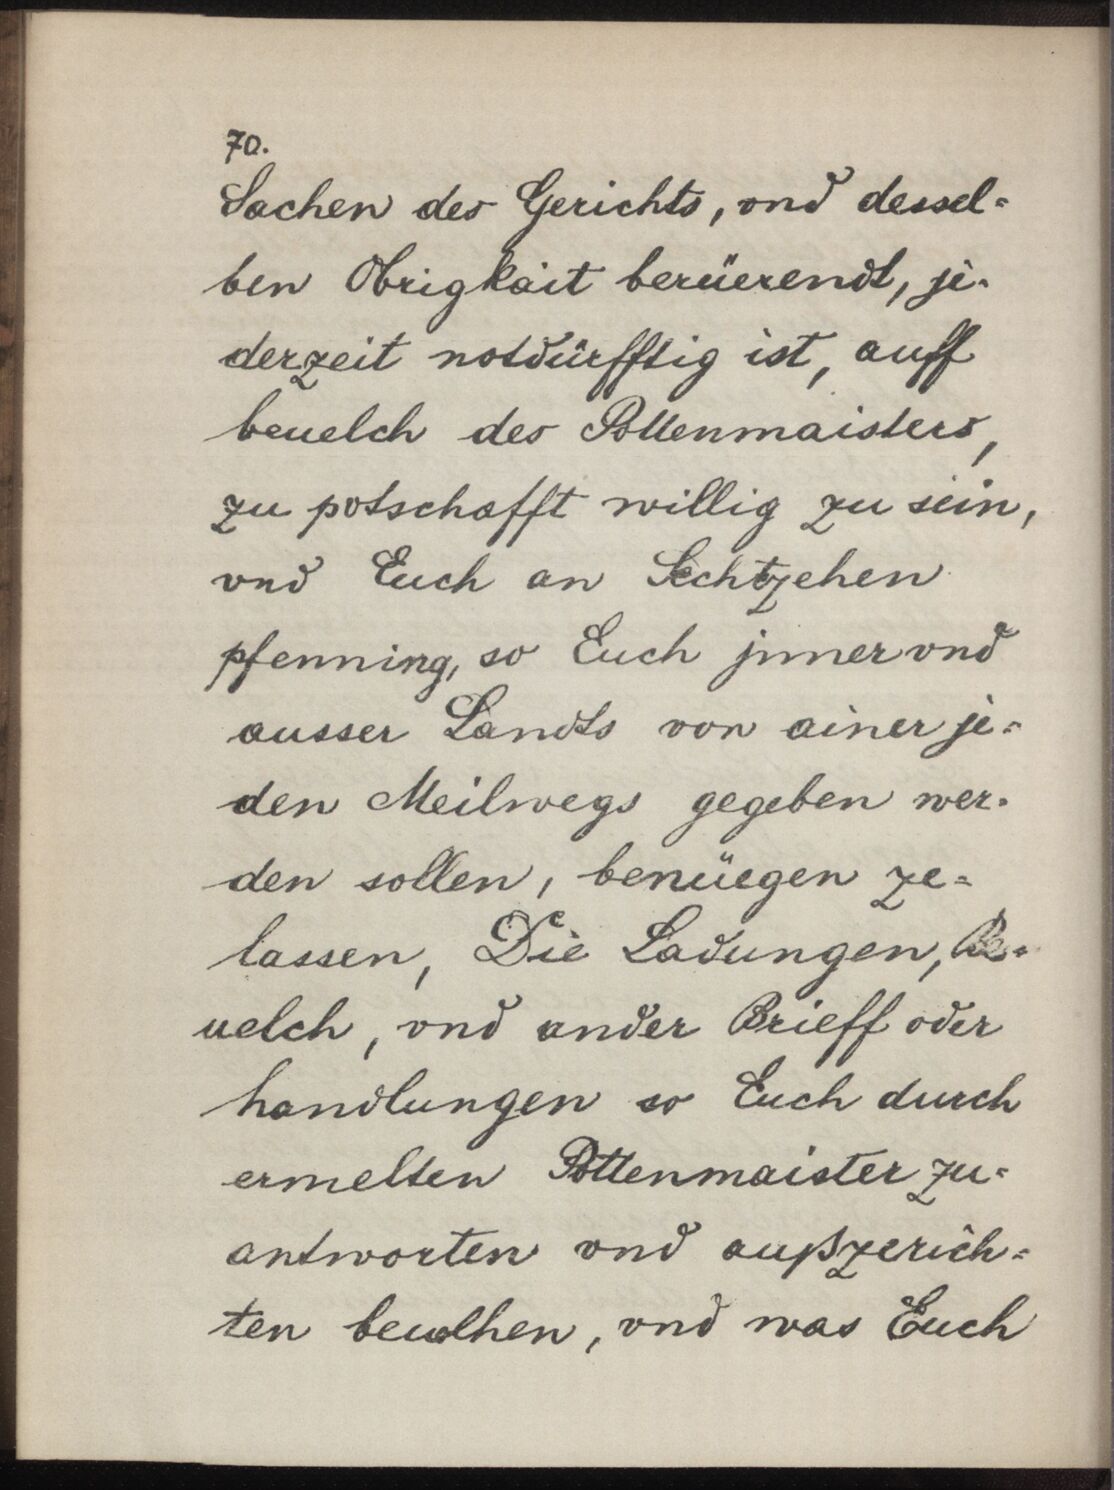 70.
Sachen des Gerichts, vnd dessel=
ben Obrigkait berüerendt, je=
derzeit notdürfftig ist, auff
beuelch des Pottenmaisters,
zu potschafft willig zu sein,
vnd Euch an Sechtzehen
pfenning, so Euch jnner vnd
ausser Landts von ainer je=
den Meilwegs gegeben wer=
den sollen, benüegen ze=
lassen, Die Ladungen, Be=
uelch, vnd ander Brieff oder
handlungen so Euch durch
ermelten Pottenmaister zu=
antworten vnd außzerich=
ten beuolhen, vnd was Euch